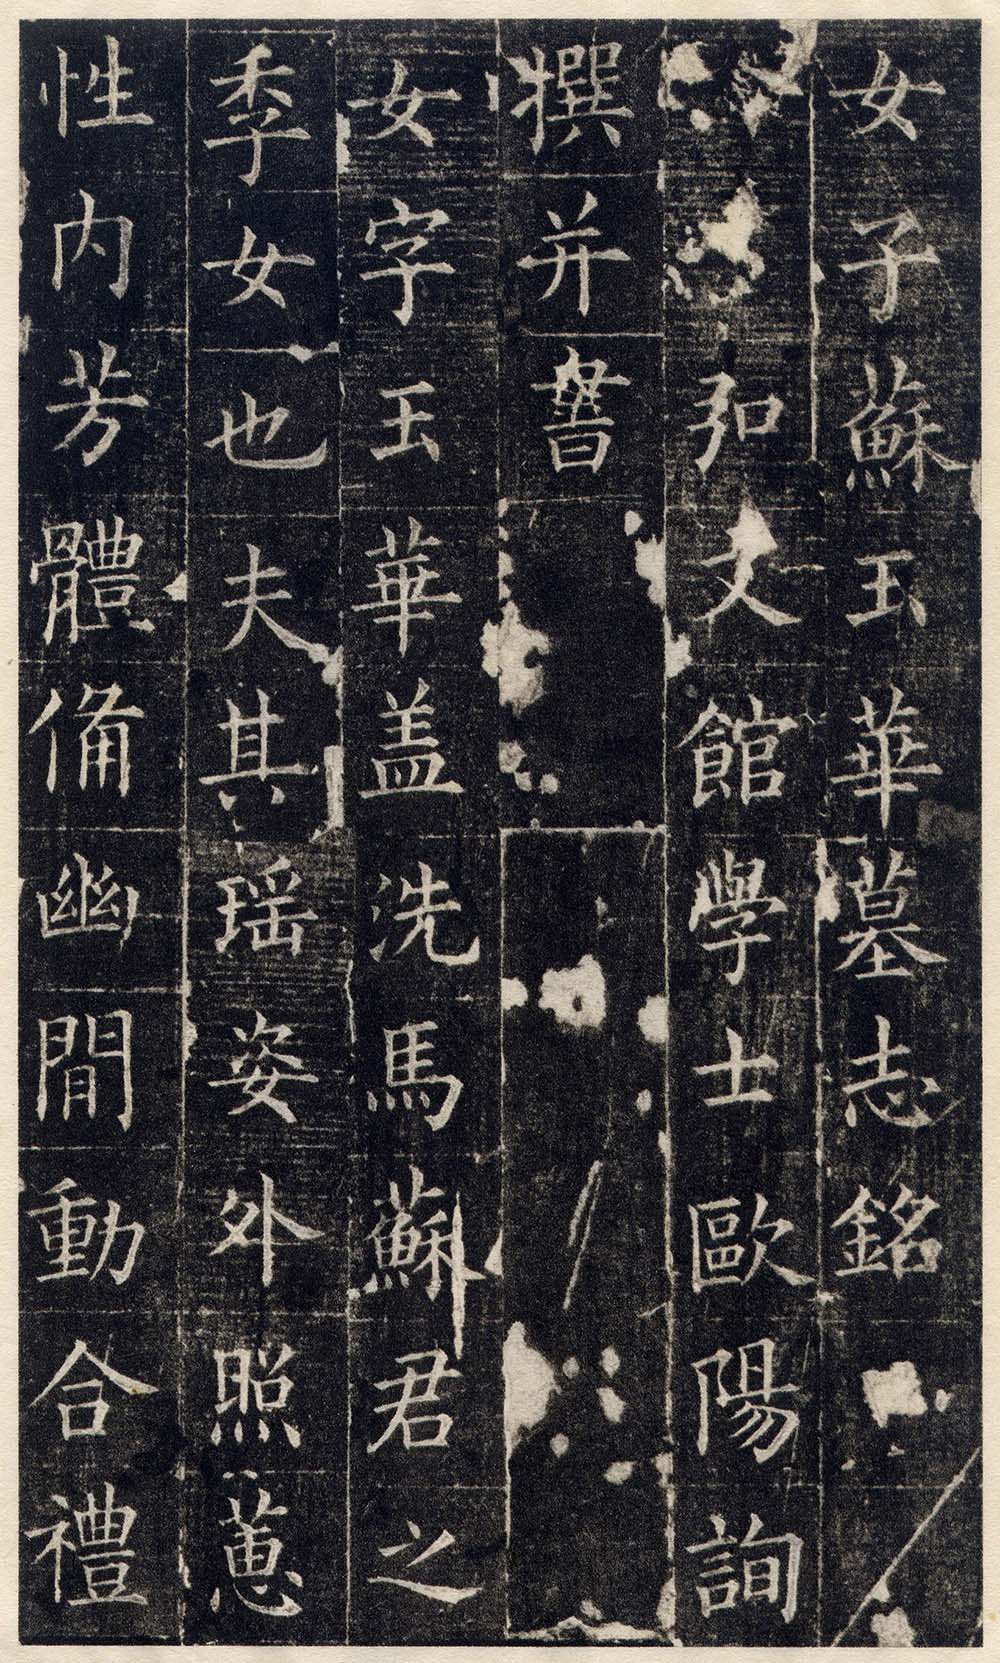 女子蘇玉華墓志銘
弘文館學士歐陽詢
撰并書
女字玉華盖洗馬蘇君之
季女也夫其瑶姿外照蕙
性内芳體俻幽閒動合禮